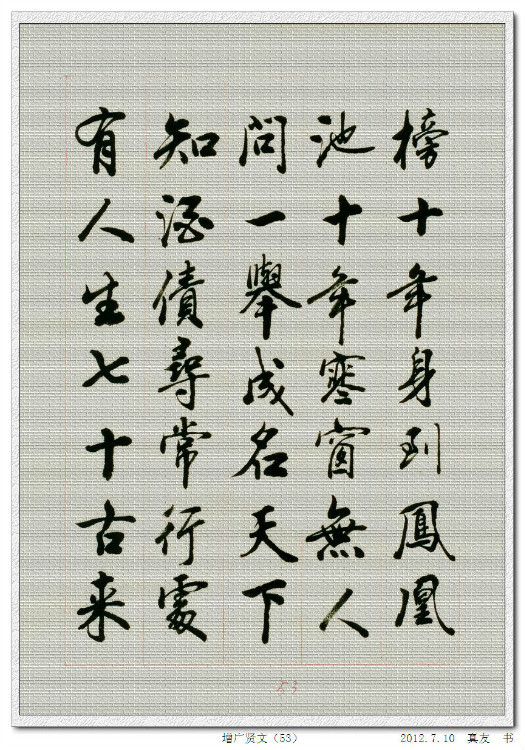 榜十年身到鳳凰
池十年寒窗無人
問一舉成名天下
知酒債尋常行處
有人生七十古来
53
增广贤文（53）
2012.7.10 真友 书